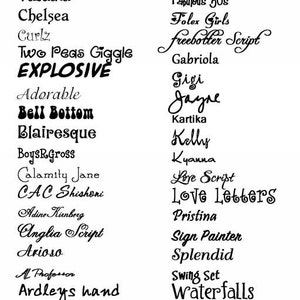 Chelsea
Curlz
Two Peas Giggle
EXPLOSIVE
Adorable
Bell Bottom
Blairesque
BoysRGross
Calamity Jane
CAC Shishoni
Adine Kirnberg
Anglia Script
Arioso
Al Professor
Ardleys hand
Jolex Girls
freebooter Script
Gabriola
Gigi
Jayne
Kartika
Kelly
Kyanna
Lye Script
Love Letters
Pristina
Sign Painter
Splendid
Swing Set
Waterfalls